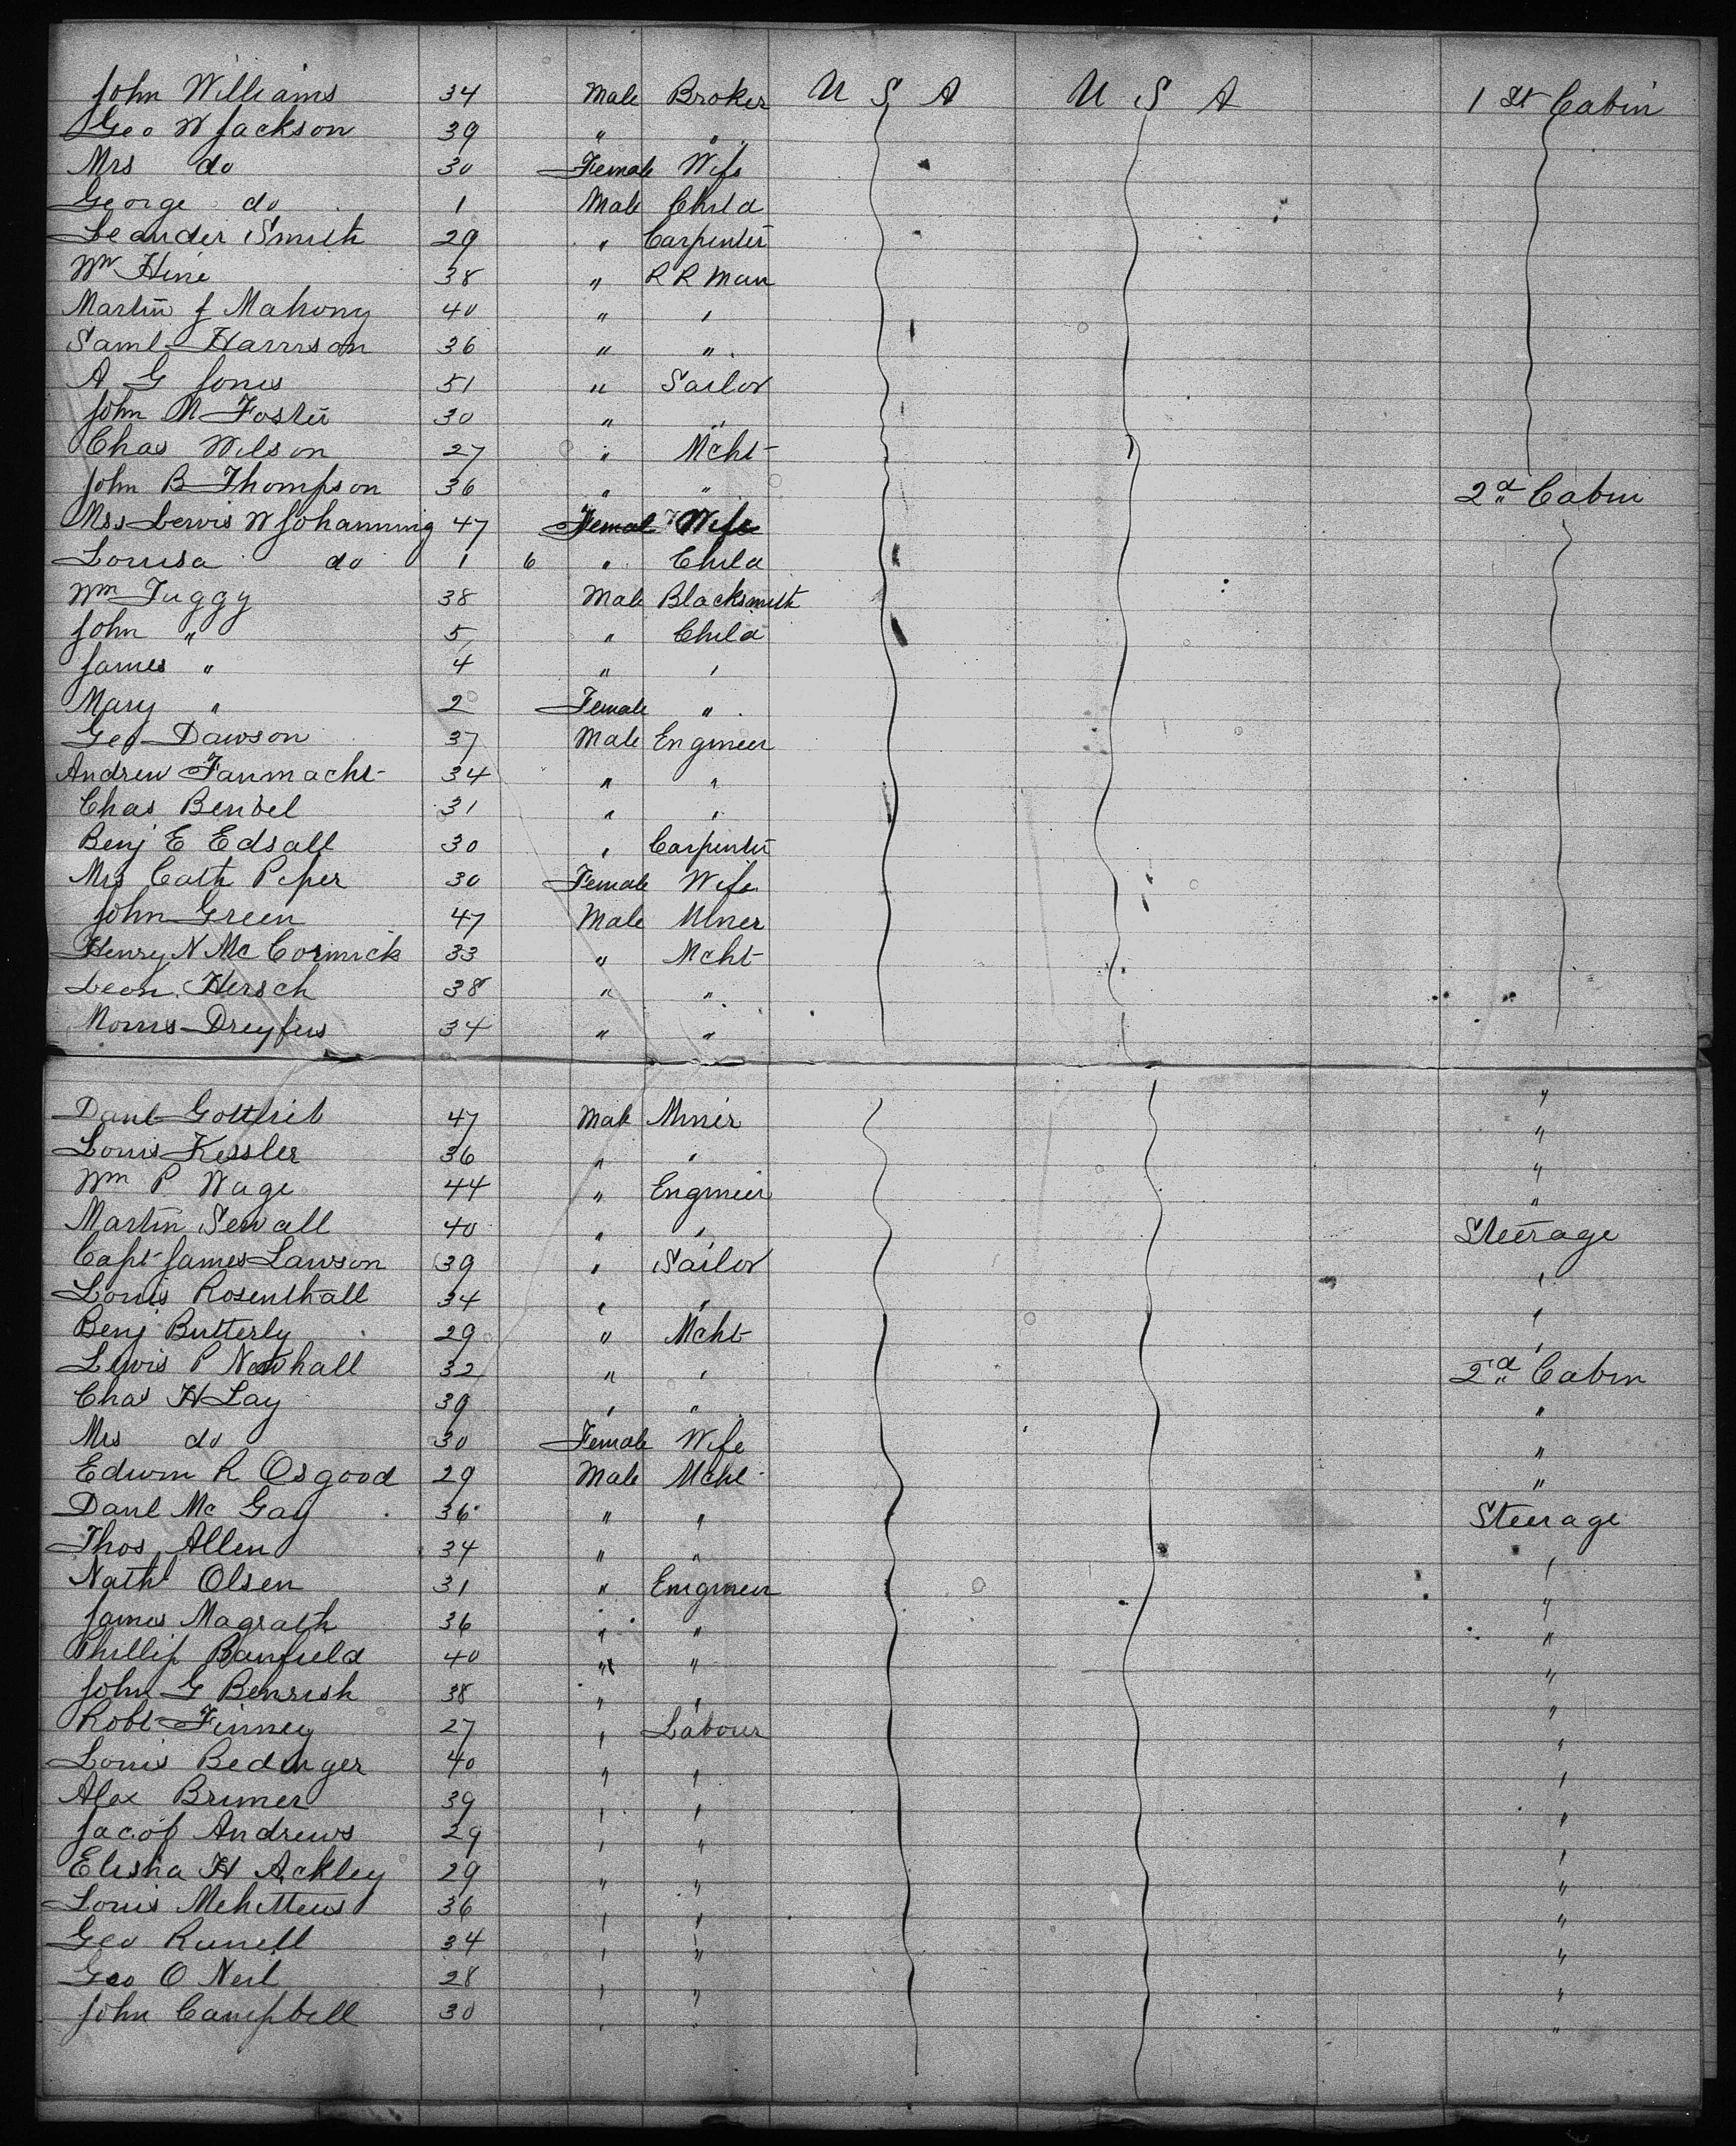 John Williams 34 Male Broker U S A U S A 1 St Cabin
Geo W Jackson 39 " "
Mrs do 30 Female Wife
George do 1 Male Child
Leander Smith 29 " Carpenter
Wm Hine 38 " R R Man
Martin J Mahony 40 " "
Saml Harrison 36 " "
A G Jones 51 " Sailor
John M Foster 30 " "
Chas Wilson 27 " Mcht
John B Thompson 36 " " 2d Cabin
Mrs Lewis W Johanning 47 Femal Wife
Louisa do 1 6 " Child
Wm Tuggy 38 Male Blacksmith
John " 5 " Child
James " 4 " "
Mary " 2 Female "
Geo Dawson 37 Male Engineer
Andrew Fanmacht 34 " "
Chas Bendel 31 " "
Benj E Edsall 30 " Carpenter
Mrs Cath Piper 30 Female Wife
John Green 47 Male Miner
Henry N Mc Cormick 33 " Mcht
Leon Hersch 38 " "
Morris Dreyfus 34 " "
Danl Gottlieb 47 Male Miner "
Louis Kessler 36 " " "
Wm P Wage 44 " Engineer "
Martin Sewall 40 " " "
Steerage
Capt James Lawson 39 " Sailor "
Louis Rosenthall 34 " " "
Benj Butterly 29 " Mcht "
Lewis P Newhall 32 " " 2d Cabin
Chas H Lay 39 " " "
Mrs do 30 Female Wife "
Edwin R Osgood 29 Male Mcht "
Danl Mc Gay 36 " " Steerage
Thos Allen 34 " " "
Nathl Olsen 31 " Engineer "
James Magrath 36 " " "
Phillip Banfield 40 " " "
John G Benrish 38 " " "
Robt Finney 27 " Labour "
Louis Bedinger 40 " " "
Alex Brimer 39 " " "
Jacob Andrews 29 " " "
Elisha H Ackley 29 " " "
Louis 36 " " "
Geo 34 " " "
Geo O Neil 28 " " "
John Campbell 30 " " "